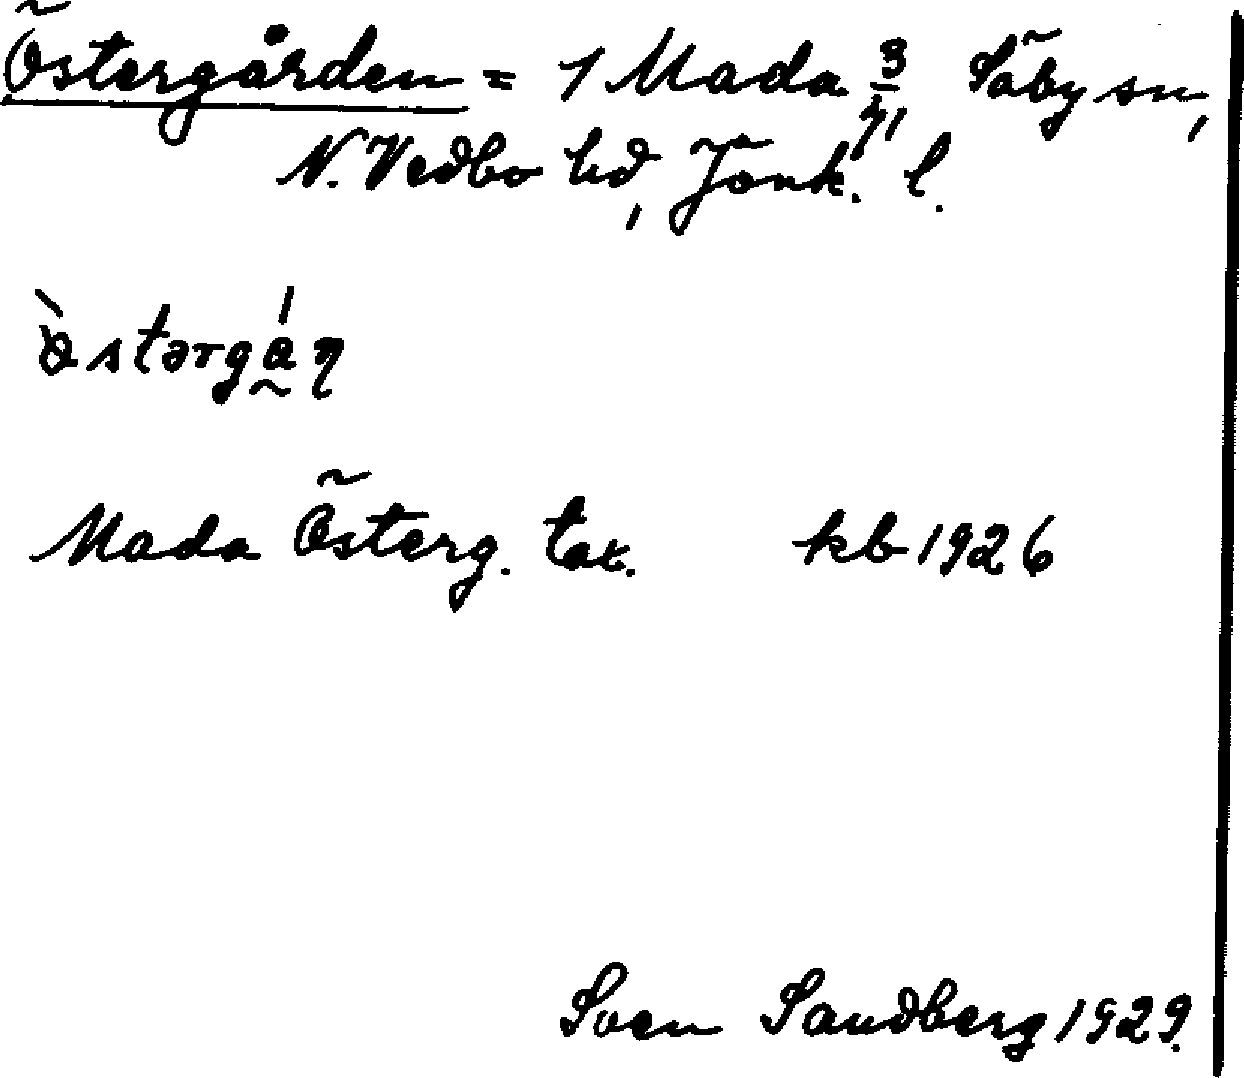 Östergården = 1 Mada 3/41 Säby sn,
N. Vedbo hd, Jönk. l.
Mada Österg. tax. kb 1926
Sven Sandberg 1929.